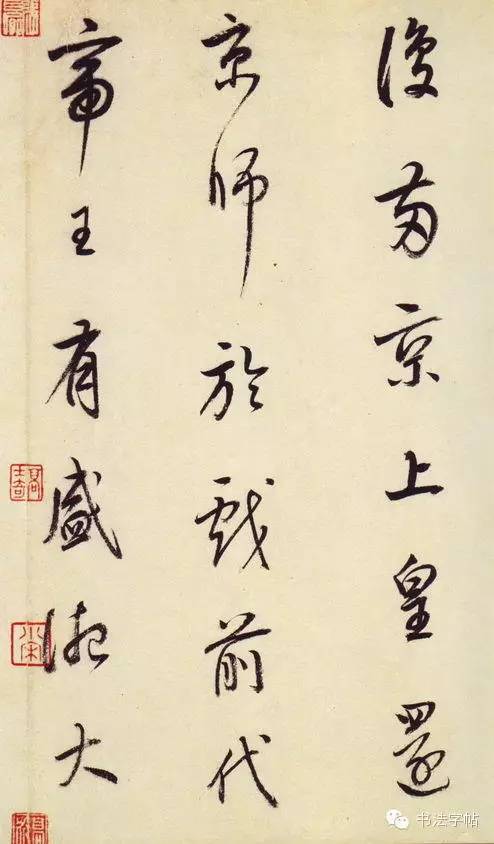 復兩京上皇還
京師於戲前代
帝王有盛德大
书法字帖